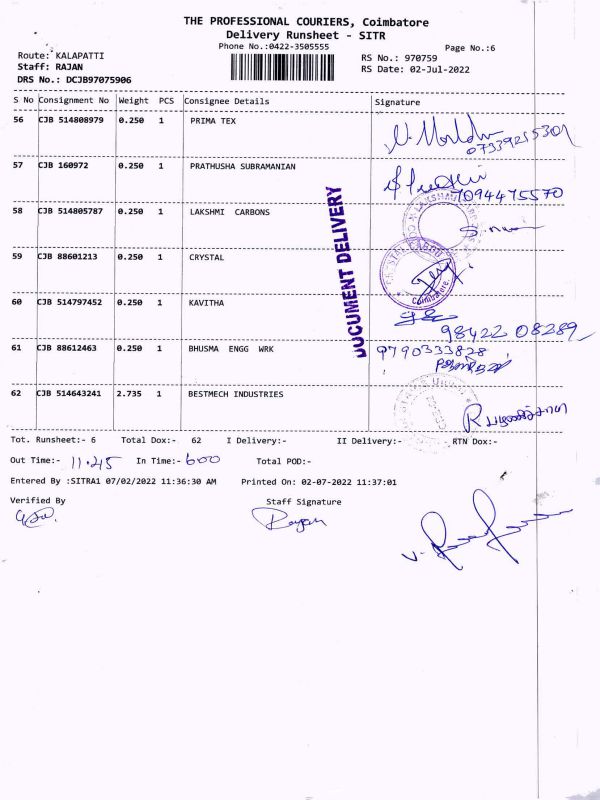 THE PROFESSIONAL COURIERS, Coimbatore
Delivery Runsheet - SITR
Phone No.:0422-3505555
Page No.:6
Route: KALAPATTI
RS No.: 970759
Staff: RAJAN
RS Date: 02-Jul-2022
DRS No.: DCJB97075906
S No Consignment No Weight PCS Consignee Details Signature
56 CJB 514808979 0.250 1 PRIMA TEX
07339215301
57 CJB 160972 0.250 1 PRATHUSHA SUBRAMANIAN
7094475570
58 CJB 514805787 0.250 1 LAKSHMI CARBONS
DOCUMENT DELIVERY
59 CJB 88601213 0.250 1 CRYSTAL
Coimbatore
60 CJB 514797452 0.250 1 KAVITHA
98422 08289
61 CJB 88612463 0.250 1 BHUSMA ENGG WRK 9790333828
62 CJB 514643241 2.735 1 BESTMECH INDUSTRIES
Tot. Runsheet:- 6 Total Dox:- 62 I Delivery:- II Delivery:- RTN Dox:-
Out Time:- 11.45 In Time:- 600 Total POD:-
Entered By :SITRA1 07/02/2022 11:36:30 AM Printed On: 02-07-2022 11:37:01
Verified By Staff Signature
Rajan